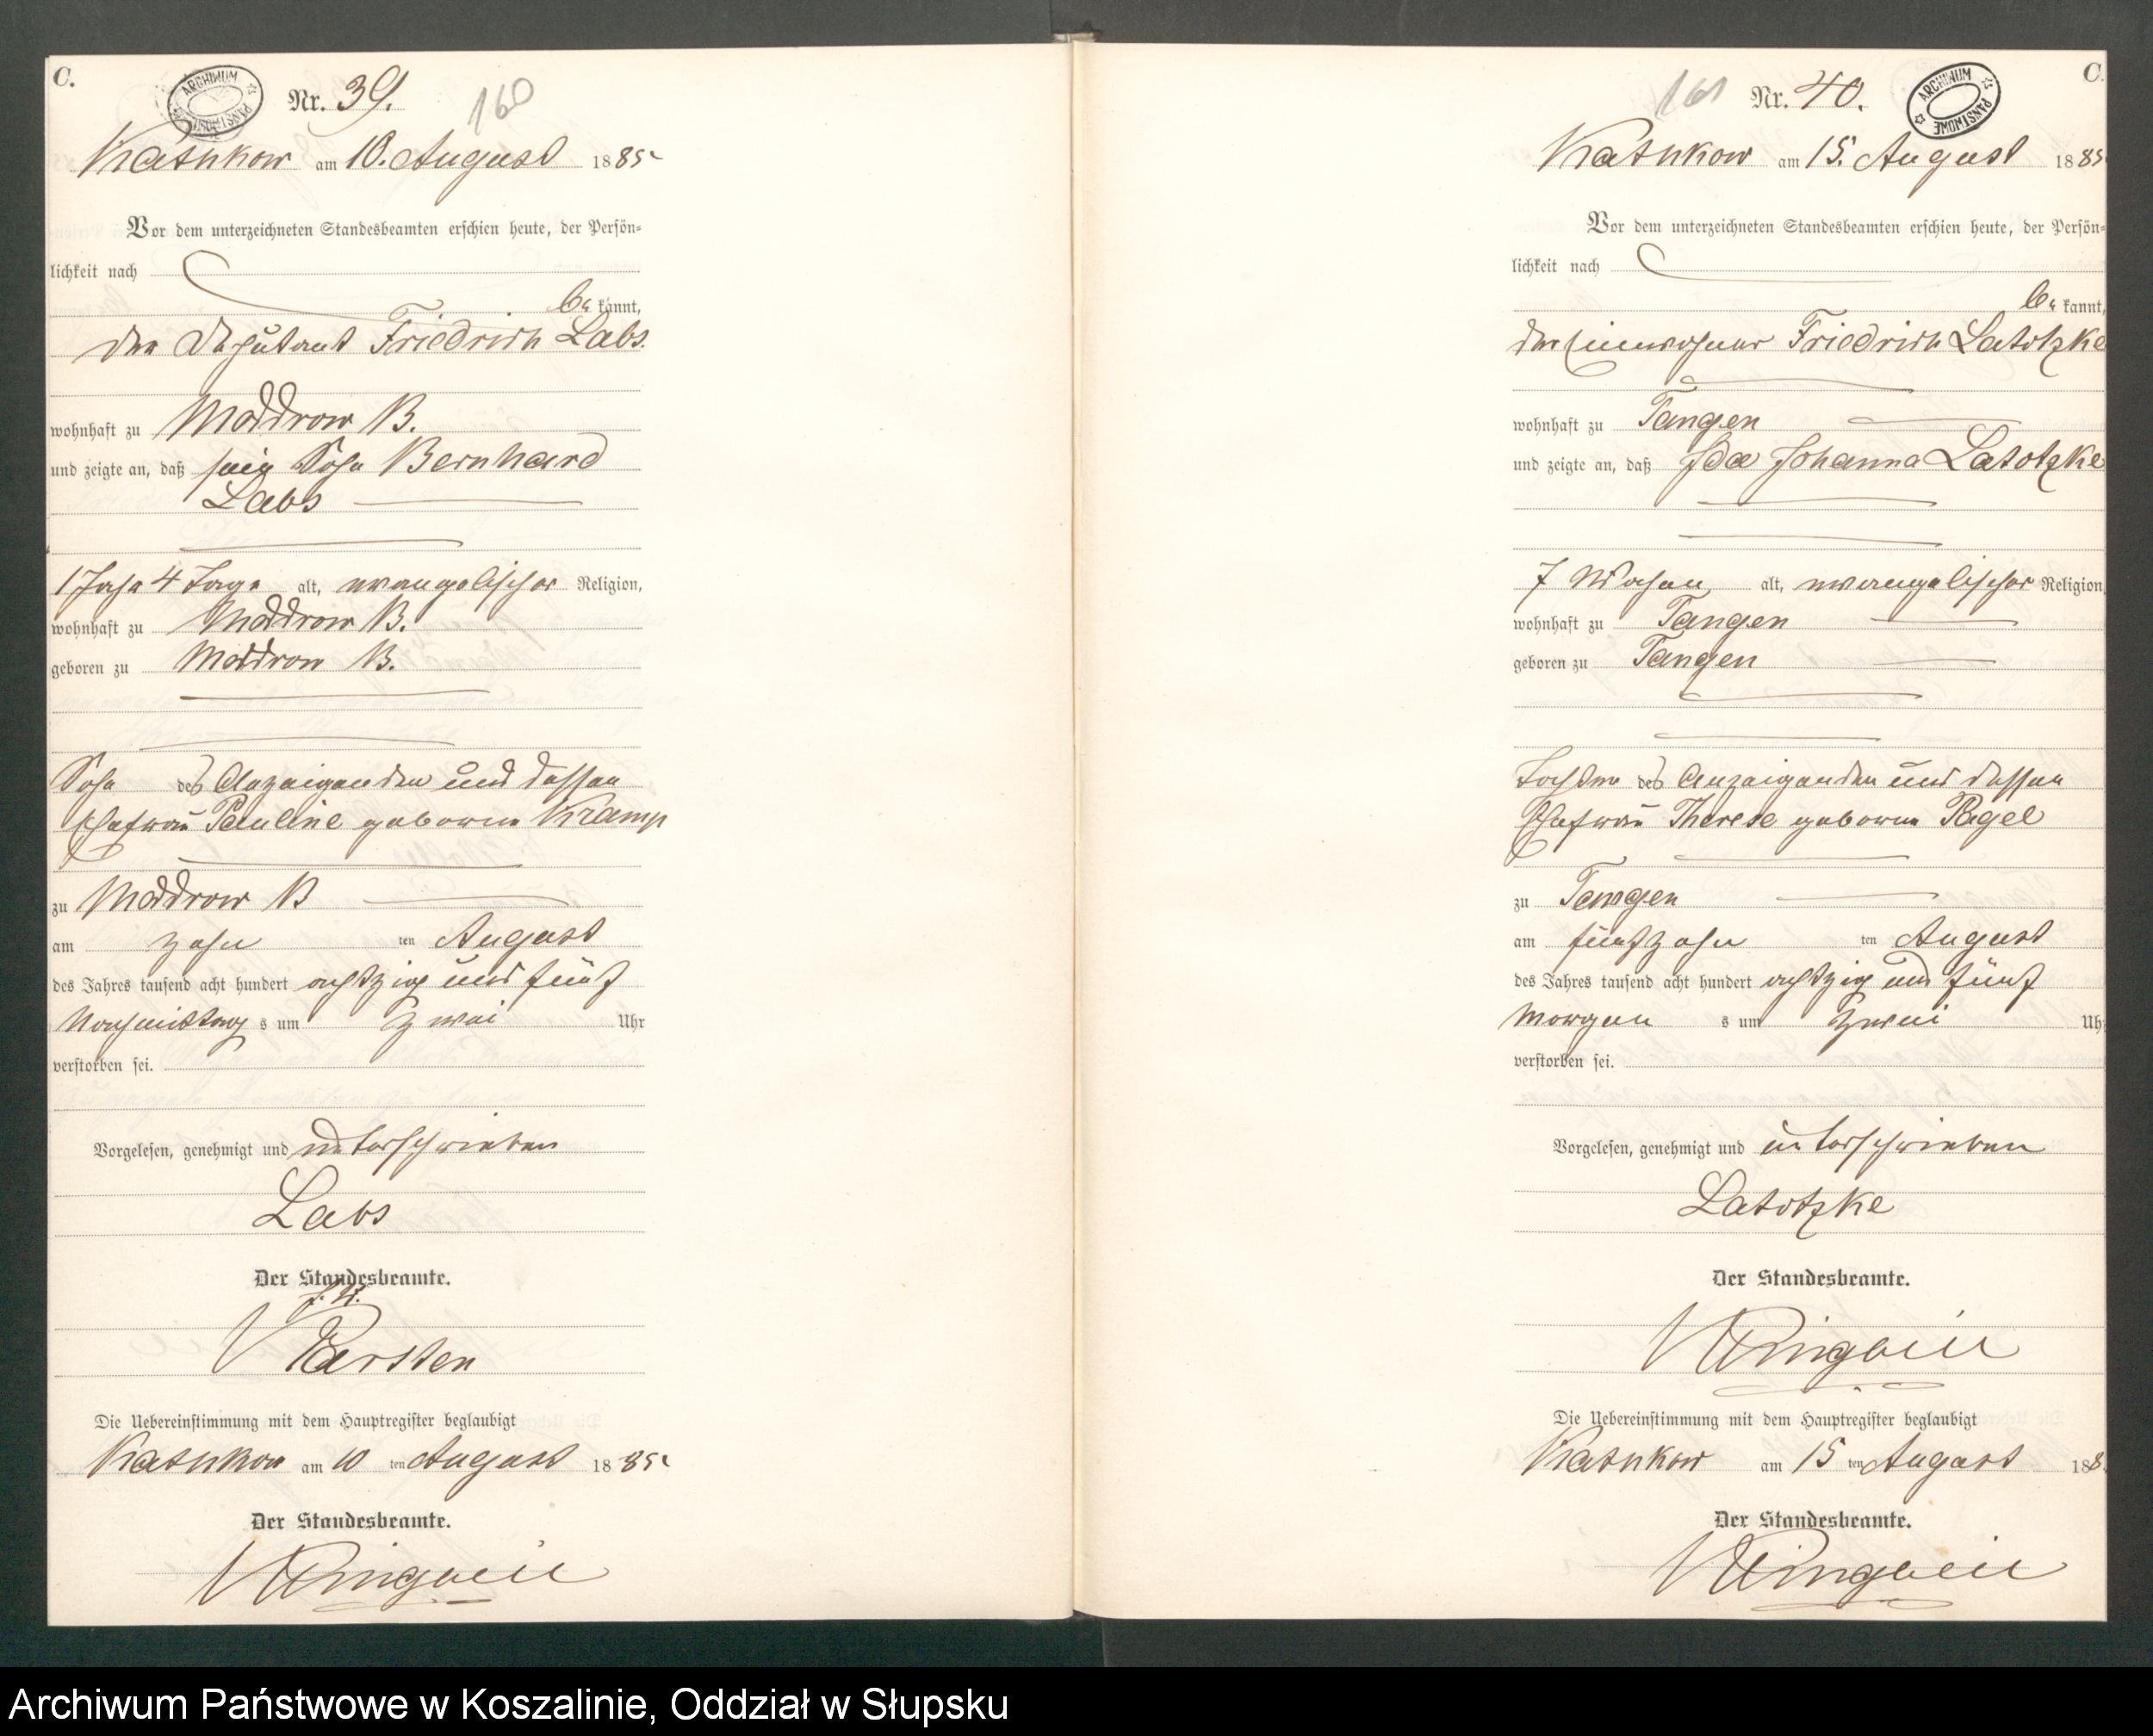 C.
ARCHIWUM PAŃSTWOWE
Nr. 39.
160
Kathkow am 10. August 1885
Vor dem unterzeichneten Standesbeamten erschien heute, der Persön-
lichkeit nach
be kannt,
der Deputant Friedrich Labs.
wohnhaft zu Moddrow B.
und zeigte an, daß sein Sohn Bernhard
Labs
1 Jahr 4 Tage alt, evangelischer Religion,
wohnhaft zu Moddrow B.
geboren zu Moddrow B.
Sohn des Anzeigenden und dessen
Ehefrau Pauline geborene Kramp
zu Moddrow B
am zehn ten August
des Jahres tausend acht hundert achtzig und fünf
Nachmittag s um zwei Uhr
verstorben sei.
Vorgelesen, genehmigt und unterschrieben
Labs
Der Standesbeamte.
J. V.
Karsten
Die Uebereinstimmung mit dem Hauptregister beglaubigt
Kathkow am 10 ten August 1885
Der Standesbeamte.
C.
161
Nr. 40.
ARCHIWUM PAŃSTWOWE
Kathkow am 15. August 1885
Vor dem unterzeichneten Standesbeamten erschien heute, der Persön-
lichkeit nach
be kannt,
der Einwohner Friedrich Latotzke
wohnhaft zu Tangen
und zeigte an, daß Ida Johanna Latotzke
7 Wochen alt, evangelischer Religion,
wohnhaft zu Tangen
geboren zu Tangen
Tochter des Anzeigenden und dessen
Ehefrau Therese geborene Pagel
zu Tangen
am fünfzehn ten August
des Jahres tausend acht hundert achtzig und fünf
Morgen s um zwei Uhr
verstorben sei.
Vorgelesen, genehmigt und unterschrieben
Latotzke
Der Standesbeamte.
Die Uebereinstimmung mit dem Hauptregister beglaubigt
Kathkow am 15 ten August 188
Der Standesbeamte.
Archiwum Państwowe w Koszalinie, Oddział w Słupsku